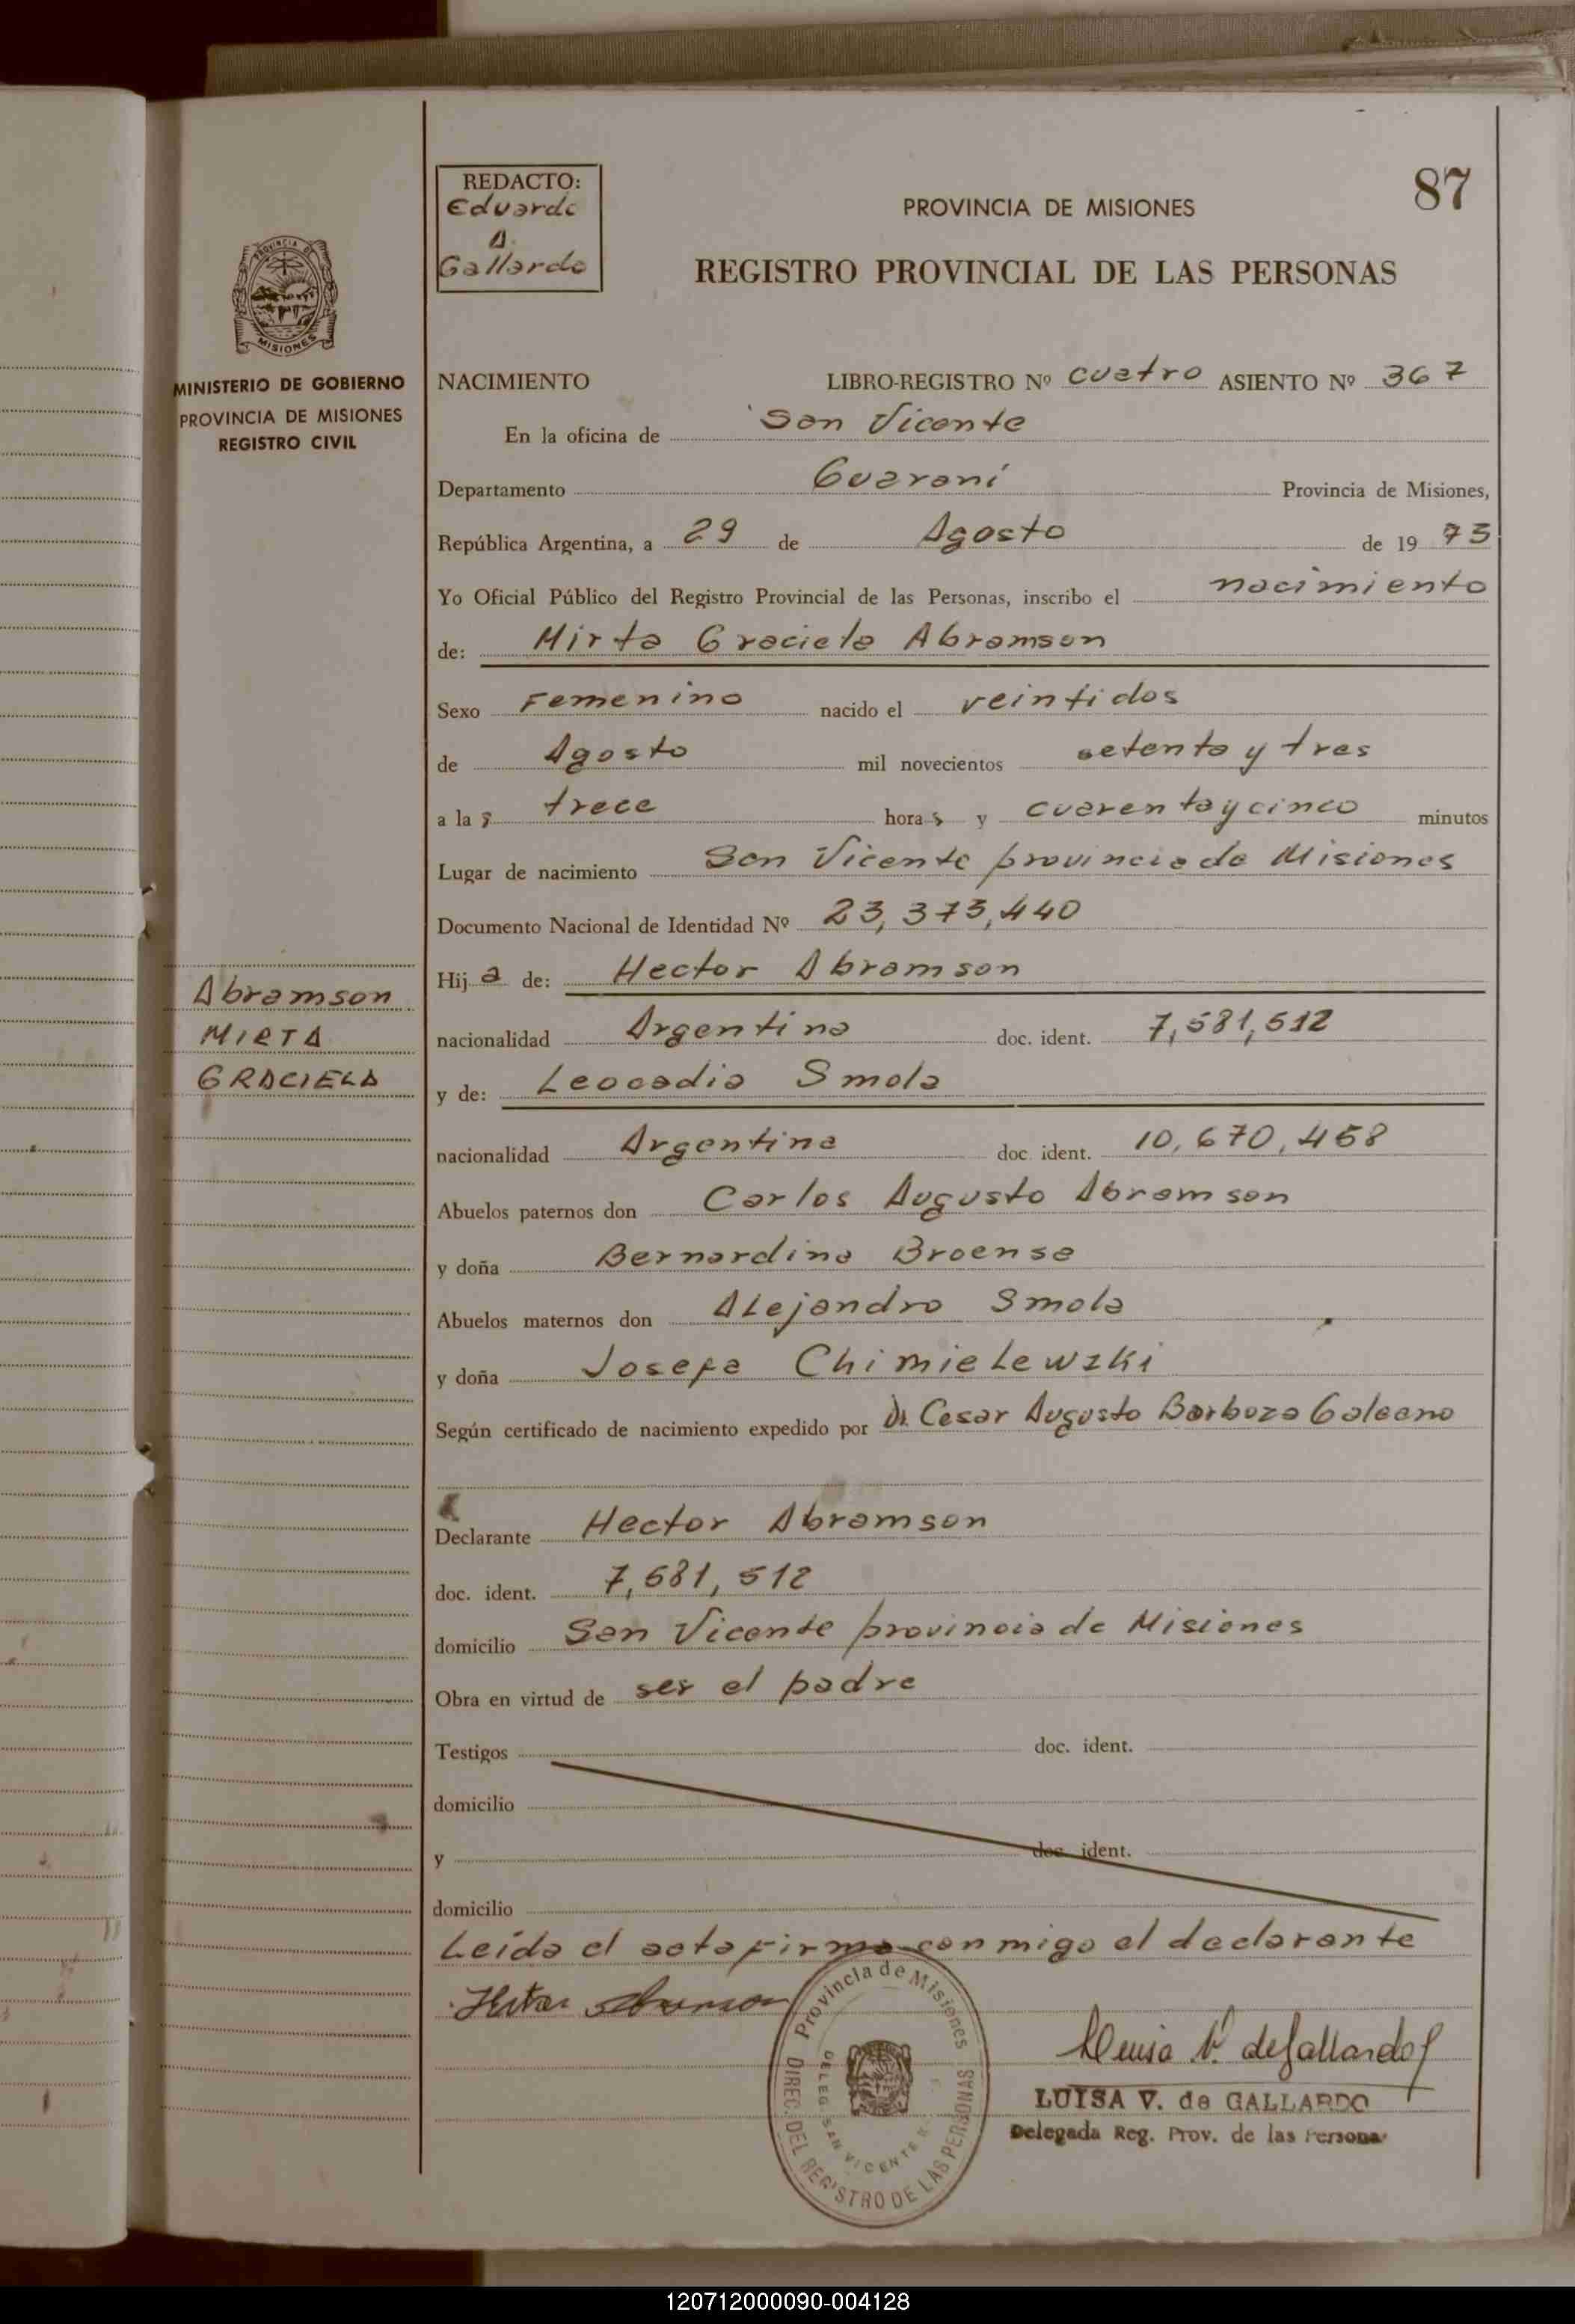 87
REDACTO:
Eduardo
A.
Gallardo
PROVINCIA DE MISIONES
REGISTRO PROVINCIAL DE LAS PERSONAS
PROVINCIA DE
MISIONES
MINISTERIO DE GOBIERNO
PROVINCIA DE MISIONES
REGISTRO CIVIL
NACIMIENTO LIBRO-REGISTRO Nº cuatro ASIENTO Nº 367
En la oficina de San Vicente
Departamento Guaraní Provincia de Misiones,
República Argentina, a 29 de Agosto de 19 73
Yo Oficial Público del Registro Provincial de las Personas, inscribo el nacimiento
de: Mirta Graciela Abramson
Sexo Femenino nacido el veintidos
de Agosto mil novecientos setenta y tres
a la s trece hora s y cuarenta y cinco minutos
Lugar de nacimiento San Vicente provincia de Misiones
Documento Nacional de Identidad Nº 23,373,440
Hij a de: Hector Abramson
Abramson
MIRTA
GRACIELA
nacionalidad Argentina doc. ident. 7,581,512
y de: Leocadia Smola
nacionalidad Argentina doc. ident. 10,670,458
Abuelos paternos don Carlos Augusto Abramson
y doña Bernardina Broense
Abuelos maternos don Alejandro Smola
y doña Josefa Chimielewski
Según certificado de nacimiento expedido por Dr. Cesar Augusto Barboza Galeano
Declarante Hector Abramson
doc. ident. 7,681,512
domicilio San Vicente provincia de Misiones
Obra en virtud de ser el padre
Testigos doc. ident.
domicilio
y doc. ident.
domicilio
Leída el acta firma conmigo el declarante
Hector Abramson
Provincia de Misiones
DIREC. DEL REGISTRO DE LAS PERSONAS
DELEG. SAN VICENTE
Luisa V. de Gallardo
LUISA V. de GALLARDO
Delegada Reg. Prov. de las Personas
120712000090-004128